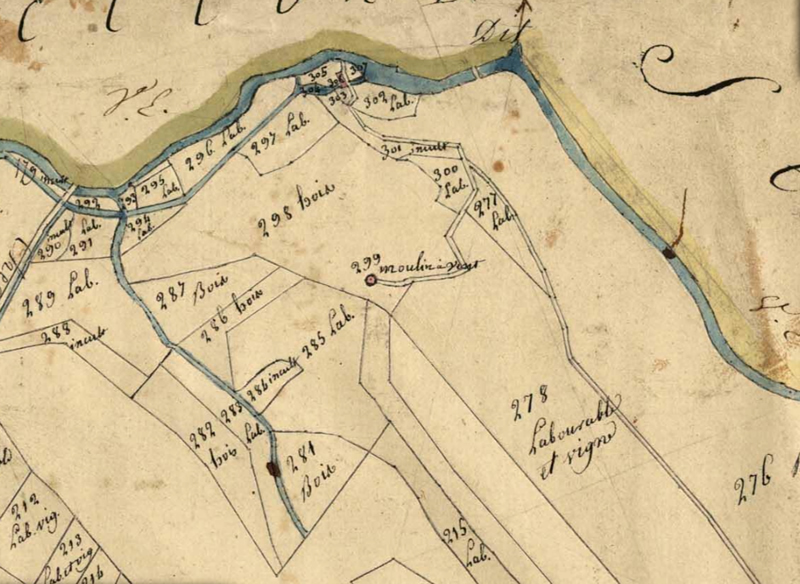 Dit
V. E.
305
307
304
303
302 Lab.
179 incult
296 Lab.
297 Lab.
301 incult
300
Lab.
277
Lab.
292
293
295
Lab.
294
Lab.
incult
290
Lab.
291
298 bois
299
moulin à vent
289 Lab.
287 Bois
286 bois
285 Lab.
288
incult
284 incult
283
Lab.
282
bois
281
Bois
278
Labourable
et vigne
276
212
Lab. vig.
213
Lab et vig
215
Lab.